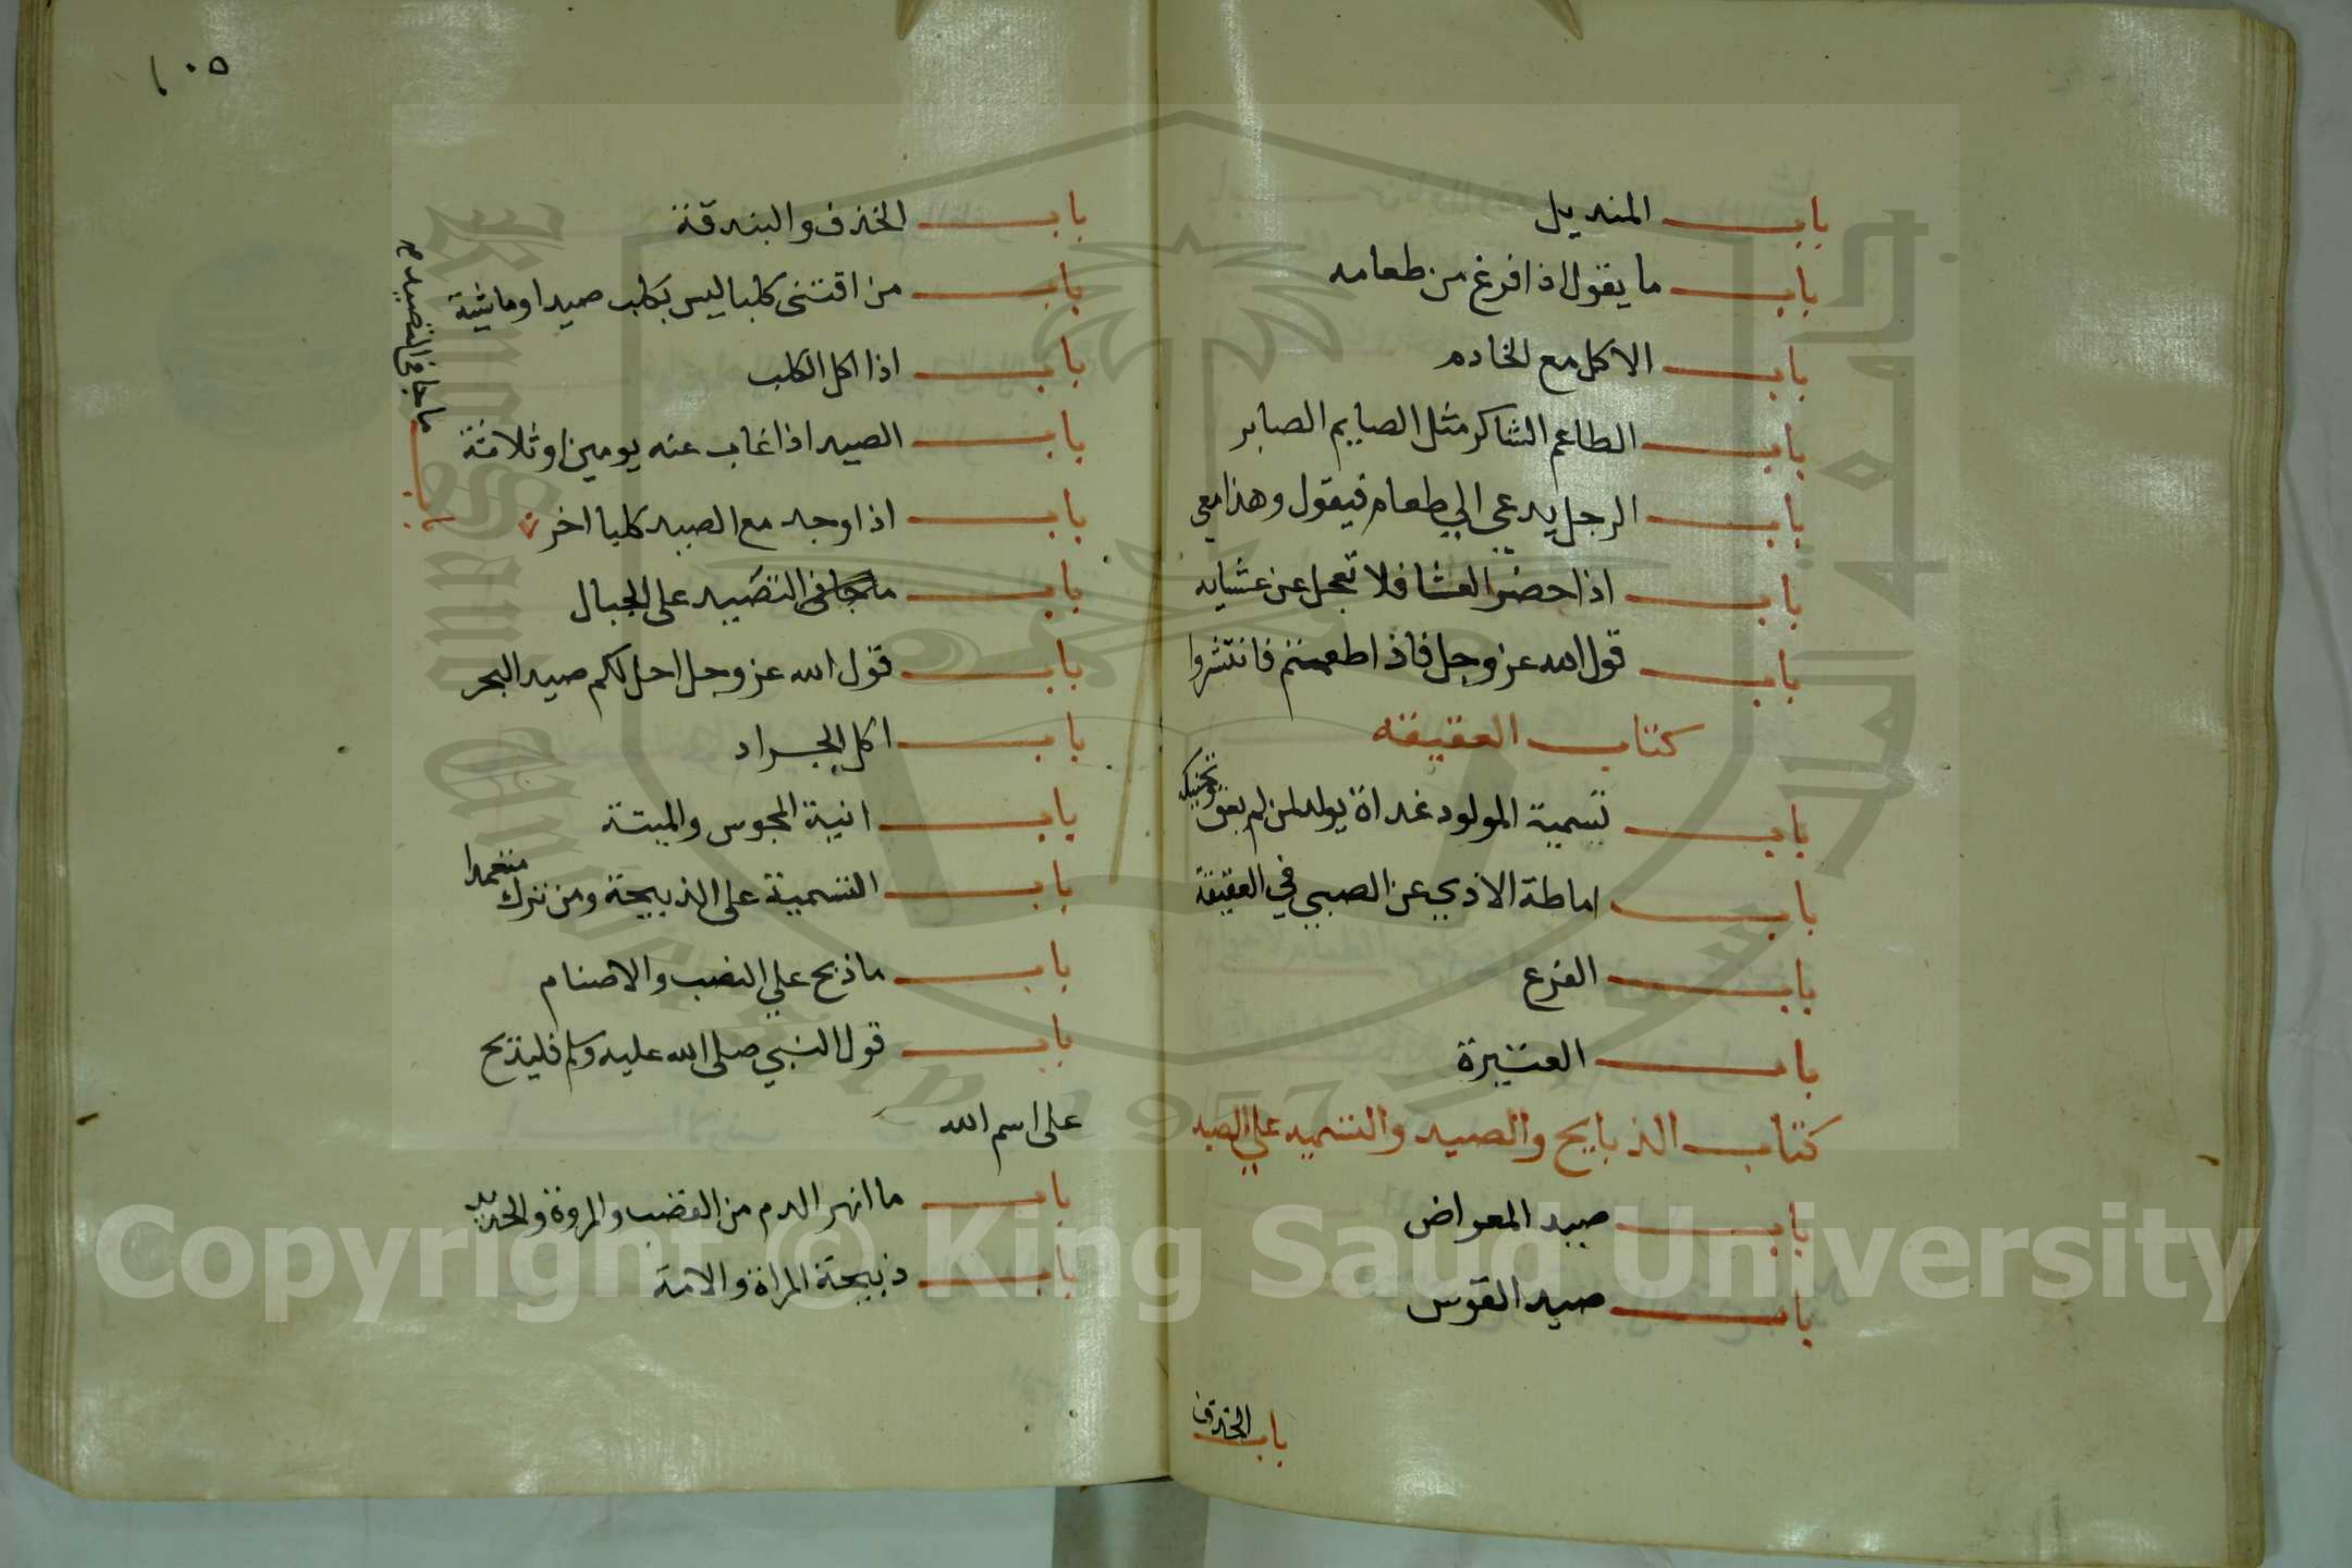 باب المنديل
باب ما يقول اذا فرغ من طعامه
باب الاكل مع الخادم
باب الطاعم الشاكر مثل الصايم الصابر
باب الرجل يدعى الي طعام فيقول وهذا معي
باب اذا حضر العشا فلا تعجل عن عشايه
باب قول الله عز وجل فاذا طعمتم فانتشروا
كتاب العقيقه
باب تسمية المولود غداة يولد لمن لم يعق وتحنيكه
باب اماطة الاذي عن الصبي في العقيقة
باب الفرع
باب العتيرة
كتاب الذبايح والصيد والتسميه علي الصيد
باب صيد المعراض
باب صيد القوس
باب الخذف
١٠٥
باب الخذف والبندقة
باب من اقتنى كلبا ليس بكلب صيد او ماشية
باب اذا اكل الكلب
باب الصيد اذا غاب عنه يومين او ثلاثة
باب اذا وجد مع الصيد كلبا اخر
باب ما جا في التصيد صح
باب التصيد على الجبال
باب قول الله عز وجل احل لكم صيد البحر
باب اكل الجراد
باب انية المجوس والميتة
باب التسمية على الذبيحة ومن ترك متعمدا
باب ما ذبح علي النصب والاصنام
باب قول النبي صلى الله عليه وسلم فليذبح
على اسم الله
باب ما انهر الدم من القصب والمروة والحديد
باب ذبيحة المراة والامة
Copyright © King Saud University
King Saud University
1957